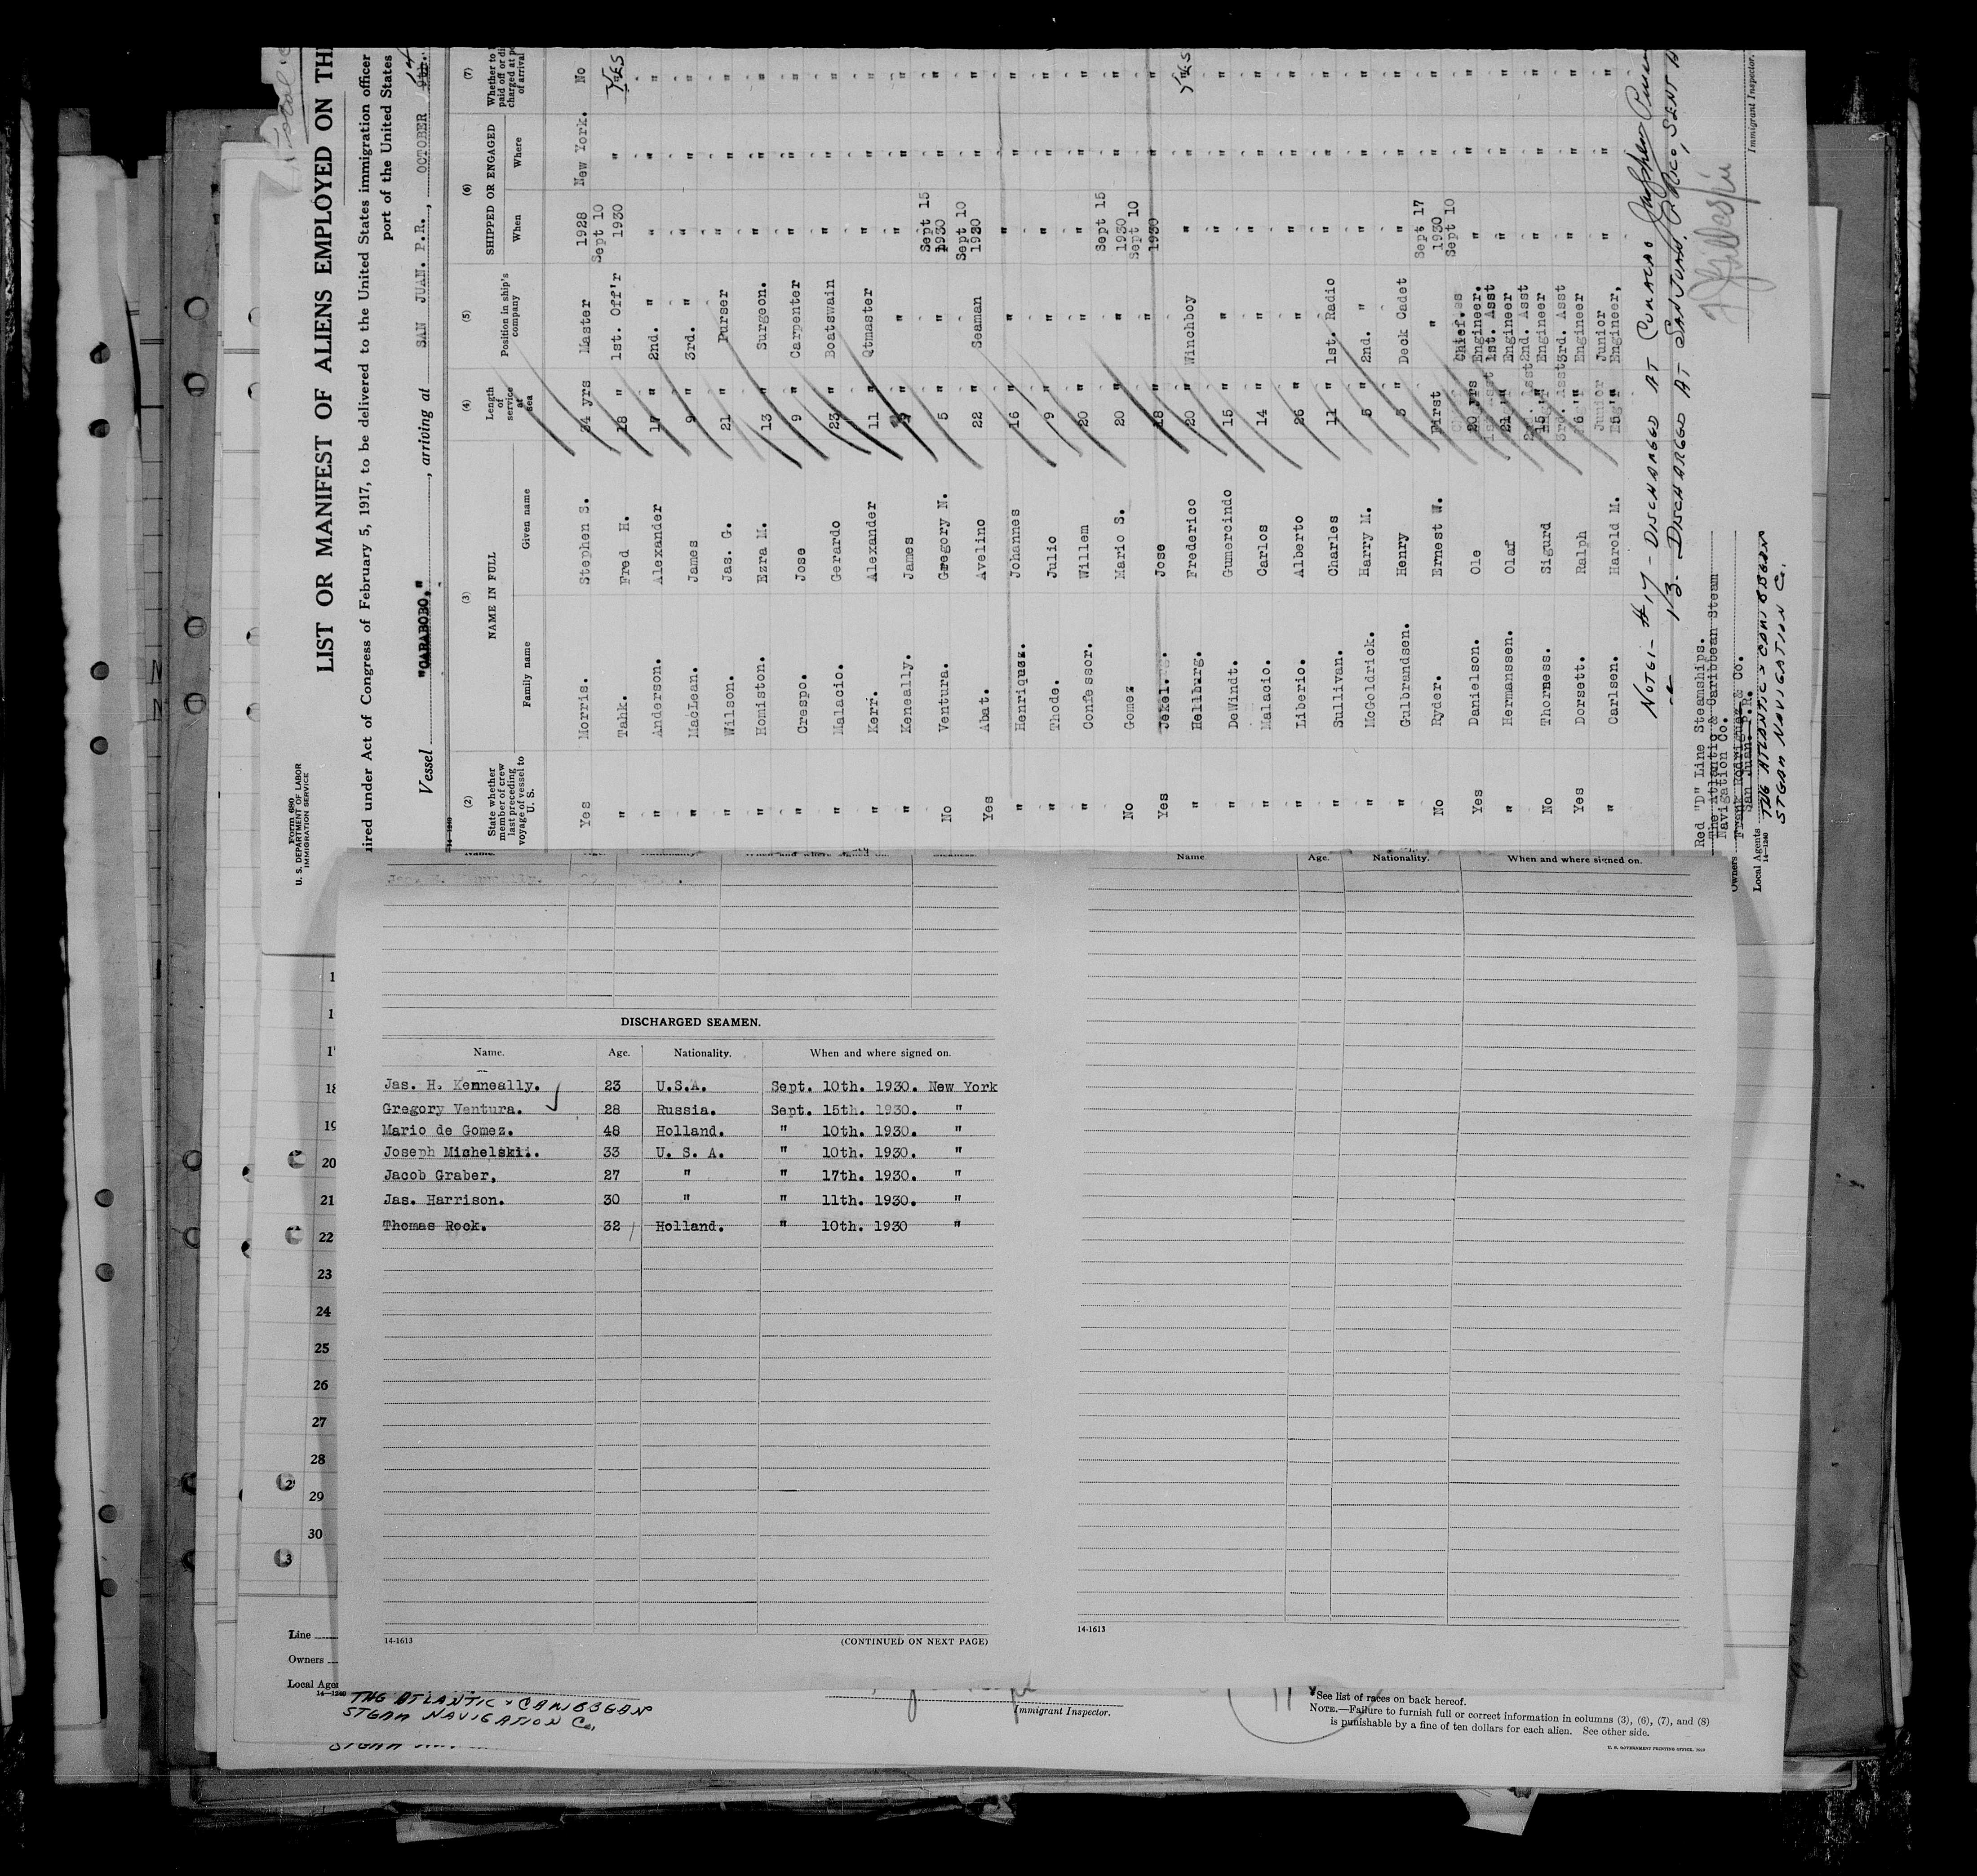 Form 680
U. S. DEPARTMENT OF LABOR
IMMIGRATION SERVICE
LIST OR MANIFEST OF ALIENS EMPLOYED ON TH
ired under Act of Congress of February 5, 1917, to be delivered to the United States immigration officer
port of the United States
Vessel "CARABOBO," , arriving at SAN JUAN. P.R. , OCTOBER 14
14-1240
(2) (3) (4) (5) (6) (7)
State whether member of crew last preceding voyage of vessel to U. S.
NAME IN FULL
Family name Given name
Length of service at sea
Position in ship's company
SHIPPED OR ENGAGED
When Where
Yes Morris. Stephen S. 34 yrs Master 1928 New York. No
" Tahk. Fred H. 18 " 1st. Off'r Sept 10 1930 " Yes
" Anderson. Alexander 17 " 2nd. " " " "
" MacLean. James 9 " 3rd. " " " "
" Wilson. Jas. G. 21 " Purser " " "
" Homiston. Ezra M. 13 " Surgeon. " " "
" Crespo. Jose 9 " Carpenter " " "
" Malacio. Gerardo 23 " Boatswain " " "
" Kerr. Alexander 11 " Qtmaster " " "
" Keneally. James " " " " "
No Ventura. Gregory N. 5 " " Sept 15 1930 " "
Yes Abat. Avelino 22 " Seaman Sept 10 1930 " "
" Henriquez. Johannes 16 " " " " "
" Thode. Julio 9 " " " " "
" Confessor. Willem 20 " " " " "
No Gomez Mario S. 20 " " Sept 15 1930 " "
Yes Jose 18 " " Sept 10 1930 " "
" Hellburg. Frederico 20 " Winchboy " " Yes
" DeWindt. Gumercindo 15 " " " " "
" Malacio. Carlos 14 " " " " "
" Liberio. Alberto 26 " " " " "
" Sullivan. Charles 11 " 1st. Radio " " "
" McGoldrick. Harry M. 5 " 2nd. " " " "
" Gulbrandsen. Henry 3 " Deck Cadet " " "
No Ryder. Ernest W. First " Sept 17 1930 " "
Yes Danielson. Ole 20 yrs Chief. Engineer. Sept 10 " " "
" Hermanssen. Olaf 21 " 1st. Asst Engineer " " "
No Thorness. Sigurd 15 " 2nd. Asst Engineer " " "
Yes Dorsett. Ralph 6 " 3rd. Asst Engineer " " "
" Carlsen. Harold M. 5 " Junior Engineer, " " "
NOTE:- #17 - DISCHARGED AT CURACAO
13- DISCHARGED AT SAN JUAN, P. RICO, SENT
Immigrant Inspector.
Red "D" Line Steamships.
The Atlantic & Caribbean Steam
Navigation Co.
Owners
Frank Rodriguez & Co.
San Juan. P.R.
Local Agents THE ATLANTIC & CARIBBEAN
STEAM NAVIGATION Co.
14-1240
Name Age. Nationality. When and where signed on.
DISCHARGED SEAMEN.
Name. Age. Nationality. When and where signed on.
Jas. H. Kenneally. 23 U.S.A. Sept. 10th. 1930. New York
Gregory Ventura. 28 Russia. Sept. 15th. 1930. "
Mario de Gomez. 48 Holland. " 10th. 1930. "
Joseph Mishelski. 33 U. S. A. " 10th. 1930. "
Jacob Graber, 27 " " 17th. 1930. "
Jas. Harrison. 30 " " 11th. 1930. "
Thomas Rock. 32 Holland. " 10th. 1930 "
14-1613
(CONTINUED ON NEXT PAGE)
14-1613
18
19
20
21
22
23
24
25
26
27
28
29
30
Line
Owners
Local Age
14-1240
THE ATLANTIC & CARIBBEAN
STEAM NAVIGATION Co.
Immigrant Inspector.
See list of races on back hereof.
NOTE.—Failure to furnish full or correct information in columns (3), (6), (7), and (8)
is punishable by a fine of ten dollars for each alien. See other side.
U. S. GOVERNMENT PRINTING OFFICE